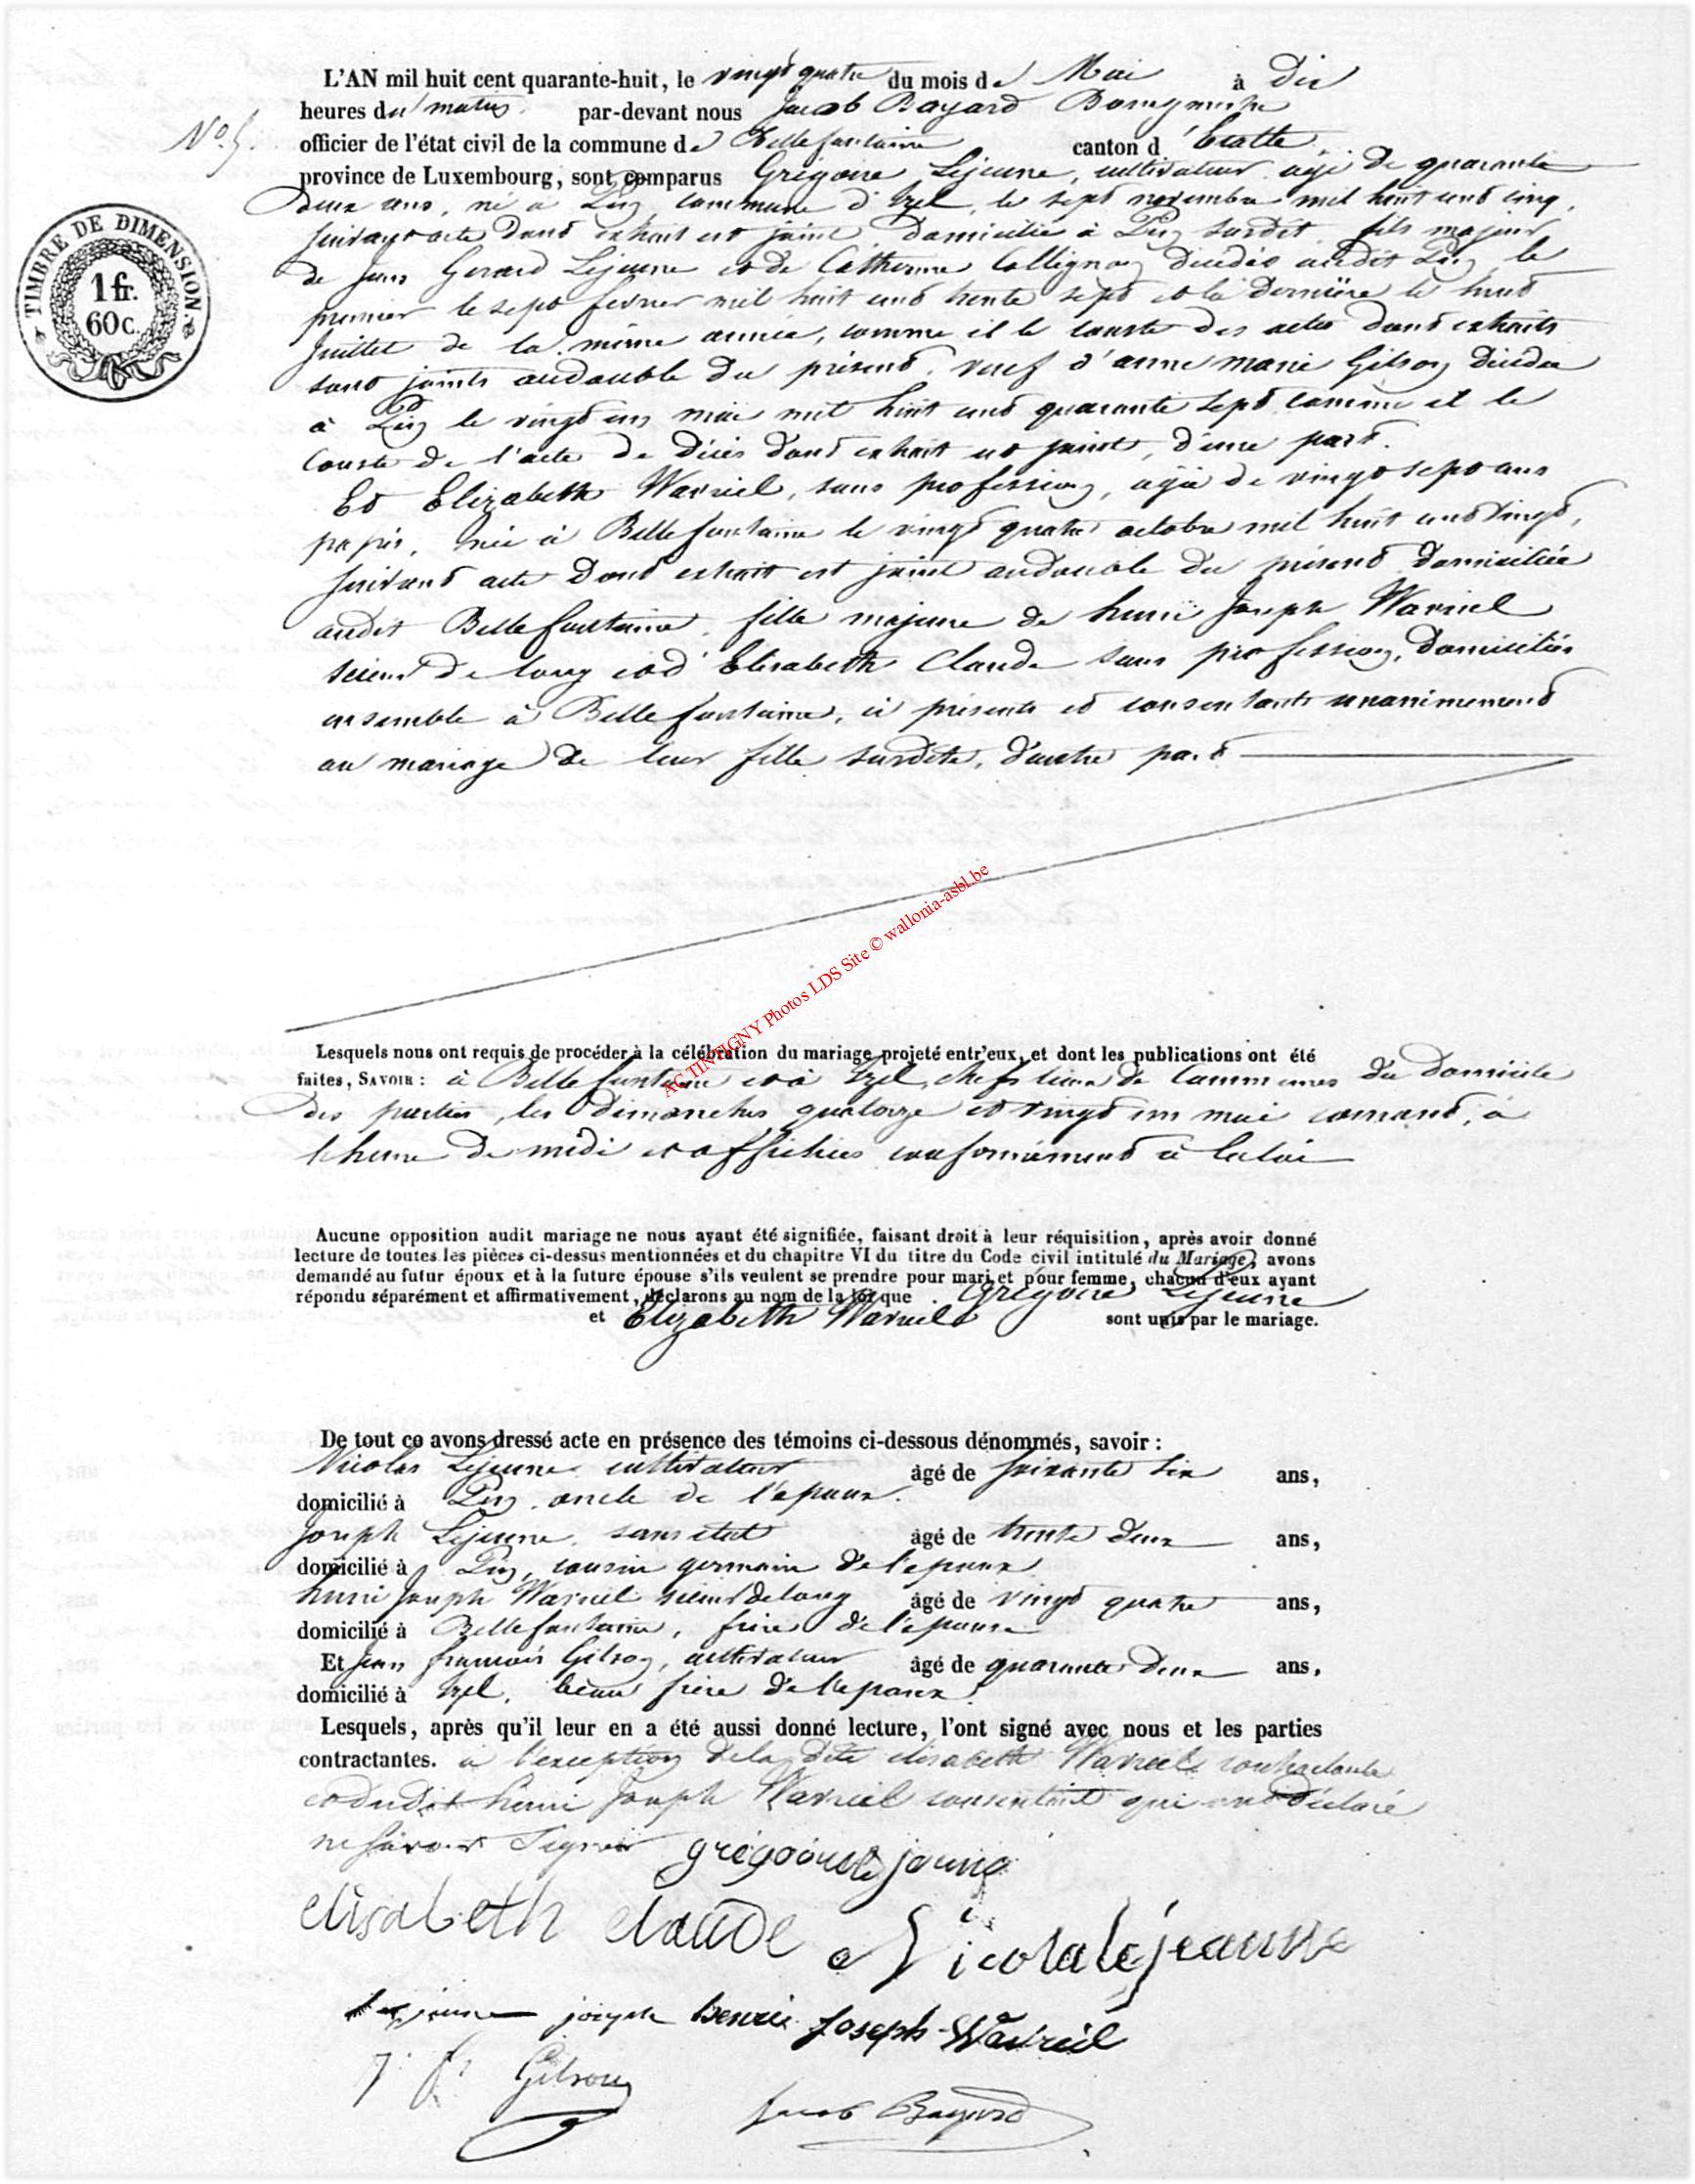 L'AN mil huit cent quarante-huit, le vingt quatre du mois de Mai à Dix
heures du matin. par-devant nous Jacob Bayard Bourgmestre
N° 5.
officier de l'état civil de la commune de Bellefontaine canton d'Etalle
province de Luxembourg, sont comparus Grégoire Lejeune, cultivateur agé de quarante
deux ans, né à Pin commune d'Izel, le sept novembre mil huit cent cinq,
suivant acte dont extrait est joint domicilié à Pin susdit, fils majeur
de Jean Gerard Lejeune et de Catherine Collignon décédés audit Pin le
premier le sept fevrier mil huit cent trente sept et la dernière le huit
juillet de la même année, comme il le conste des actes dont extraits
sont joints au double du présent, veuf d'anne marie Gilson décédée
à Pin le vingt un mai mil huit cent quarante sept comme il le
conste de l'acte de décès dont extrait est joint, d'une part.
Et Elizabeth Wavreil, sans profession, agée de vingt sept ans
passés, née à Bellefontaine le vingt quatre octobre mil huit cent vingt,
suivant acte dont extrait est joint au double du présent domiciliée
audit Bellefontaine, fille majeure de henri Joseph Wavreil
scieur de long et d'Elisabeth Claude sans profession, domiciliés
ensemble à Bellefontaine, ci présents et consentants unanimement
au mariage de leur fille susdite, d'autre part
TIMBRE DE DIMENSION.
1 fr.
60 c.
AC TINTIGNY Photos LDS Site © wallonia-asbl.be
Lesquels nous ont requis de procéder à la célébration du mariage projeté entr'eux, et dont les publications ont été
faites, SAVOIR : à Bellefontaine et à Izel, chefs lieux de Communes du domicile
des parties, les dimanches quatorze et vingt un mai courant, à
l'heure de midi et affichées conformément à la loi
Aucune opposition audit mariage ne nous ayant été signifiée, faisant droit à leur réquisition, après avoir donné
lecture de toutes les pièces ci-dessus mentionnées et du chapitre VI du titre du Code civil intitulé du Mariage, avons
demandé au futur époux et à la future épouse s'ils veulent se prendre pour mari et pour femme, chacun d'eux ayant
répondu séparément et affirmativement, déclarons au nom de la loi que Grégoire Lejeune
et Elizabeth Wavreil sont unis par le mariage.
De tout ce avons dressé acte en présence des témoins ci-dessous dénommés, savoir :
Nicolas Lejeune cultivateur âgé de soixante six ans,
domicilié à Pin, oncle de l'epoux.
Joseph Lejeune, sans etat âgé de trente deux ans,
domicilié à Pin, cousin germain de l'epoux
henri Joseph Wavreil scieur de long âgé de vingt quatre ans,
domicilié à Bellefontaine, frère de l'épouse
Et Jean francois Gilson, cultivateur âgé de quarante deux ans,
domicilié à Izel, beau frère de l'epoux.
Lesquels, après qu'il leur en a été aussi donné lecture, l'ont signé avec nous et les parties
contractantes. à l'exception de la dite elisabeth Wavreil contractante
et dudit henri Joseph Wavreil consentant qui ont déclaré
ne savoir signer grégoire lejeune
elisabeth claude Nicola lejeaune
lejeune joseph henrie joseph Wavreil
J. f. Gilson
Jacob Bayard